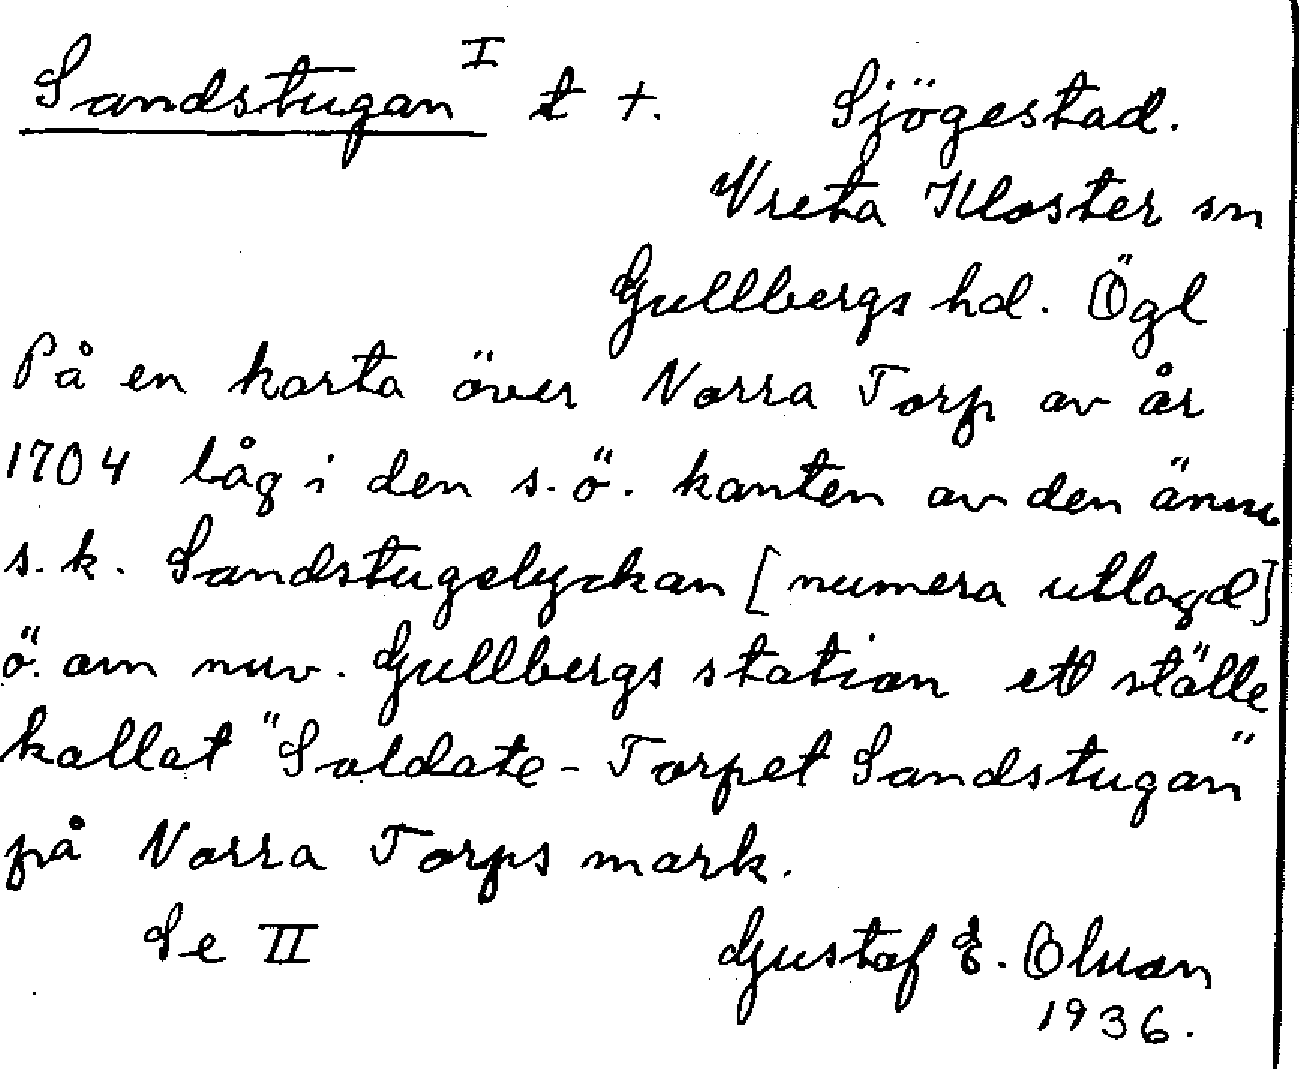 Sandstugan I t +. Sjögestad.
Vreta Kloster sn
Gullbergs hd. Ögl
På en karta över Norra Torp av år
1704 låg i den s.ö. kanten av den ännu
s.k. Sandstugelyckan [numera utlagd]
ö. om nuv. Gullbergs station ett ställe
kallat "Soldate-Torpet Sandstugan"
på Norra Torps mark.
Se II Gustaf E. Olsson
1936.